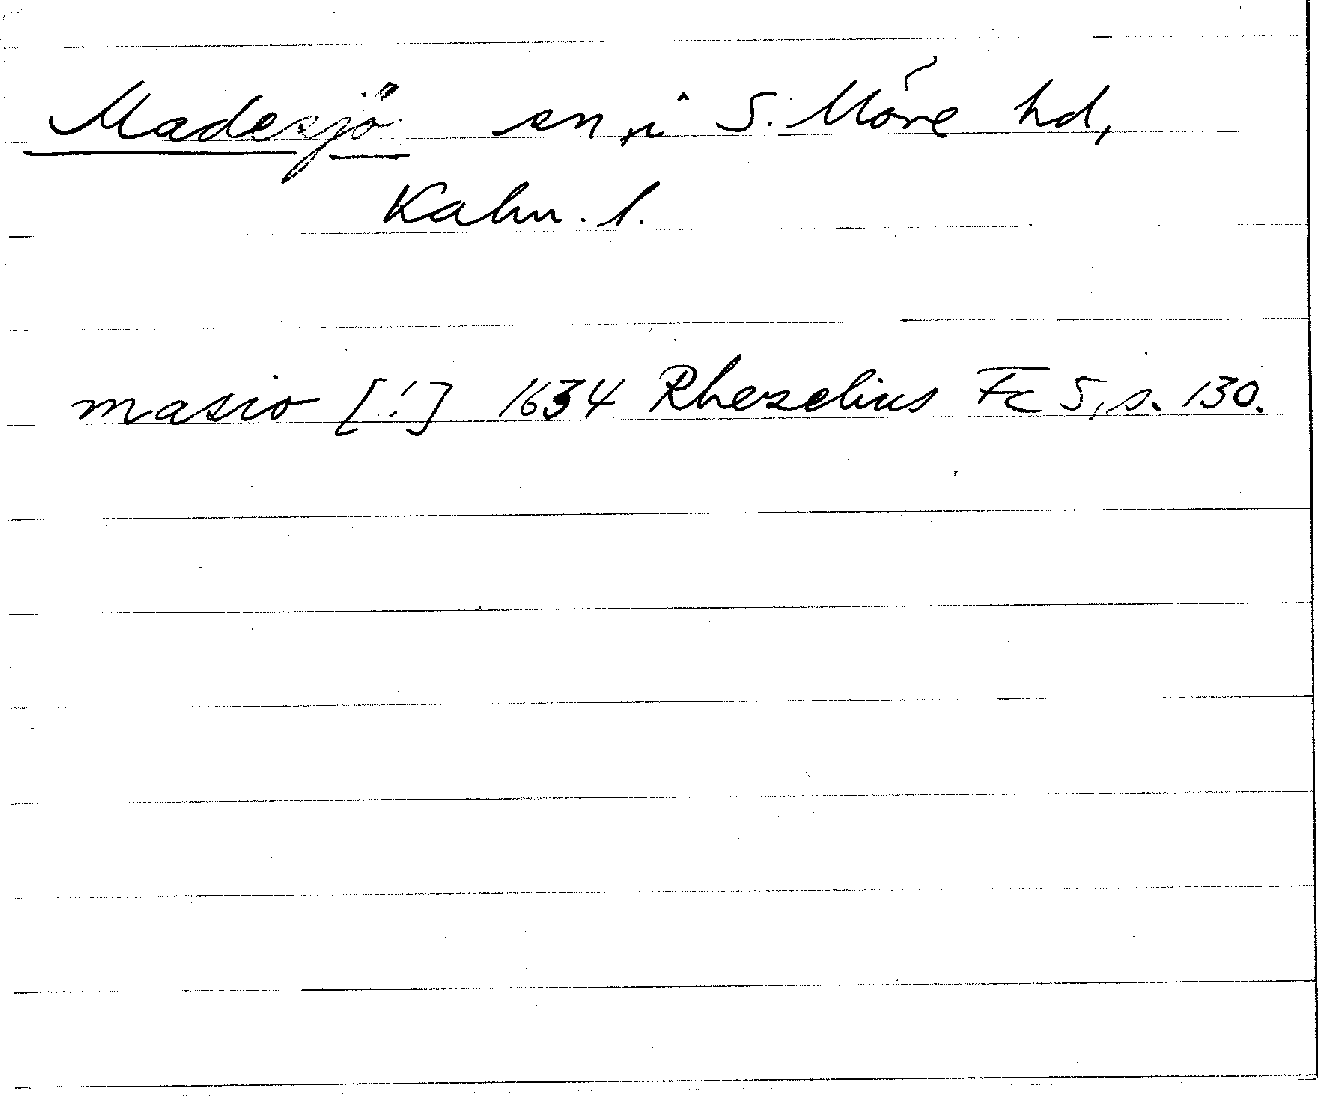 Madesjö sn, i S. Möre hd,
Kalm. l.
masio [!] 1634 Rhezelius Fc 5, s. 130.